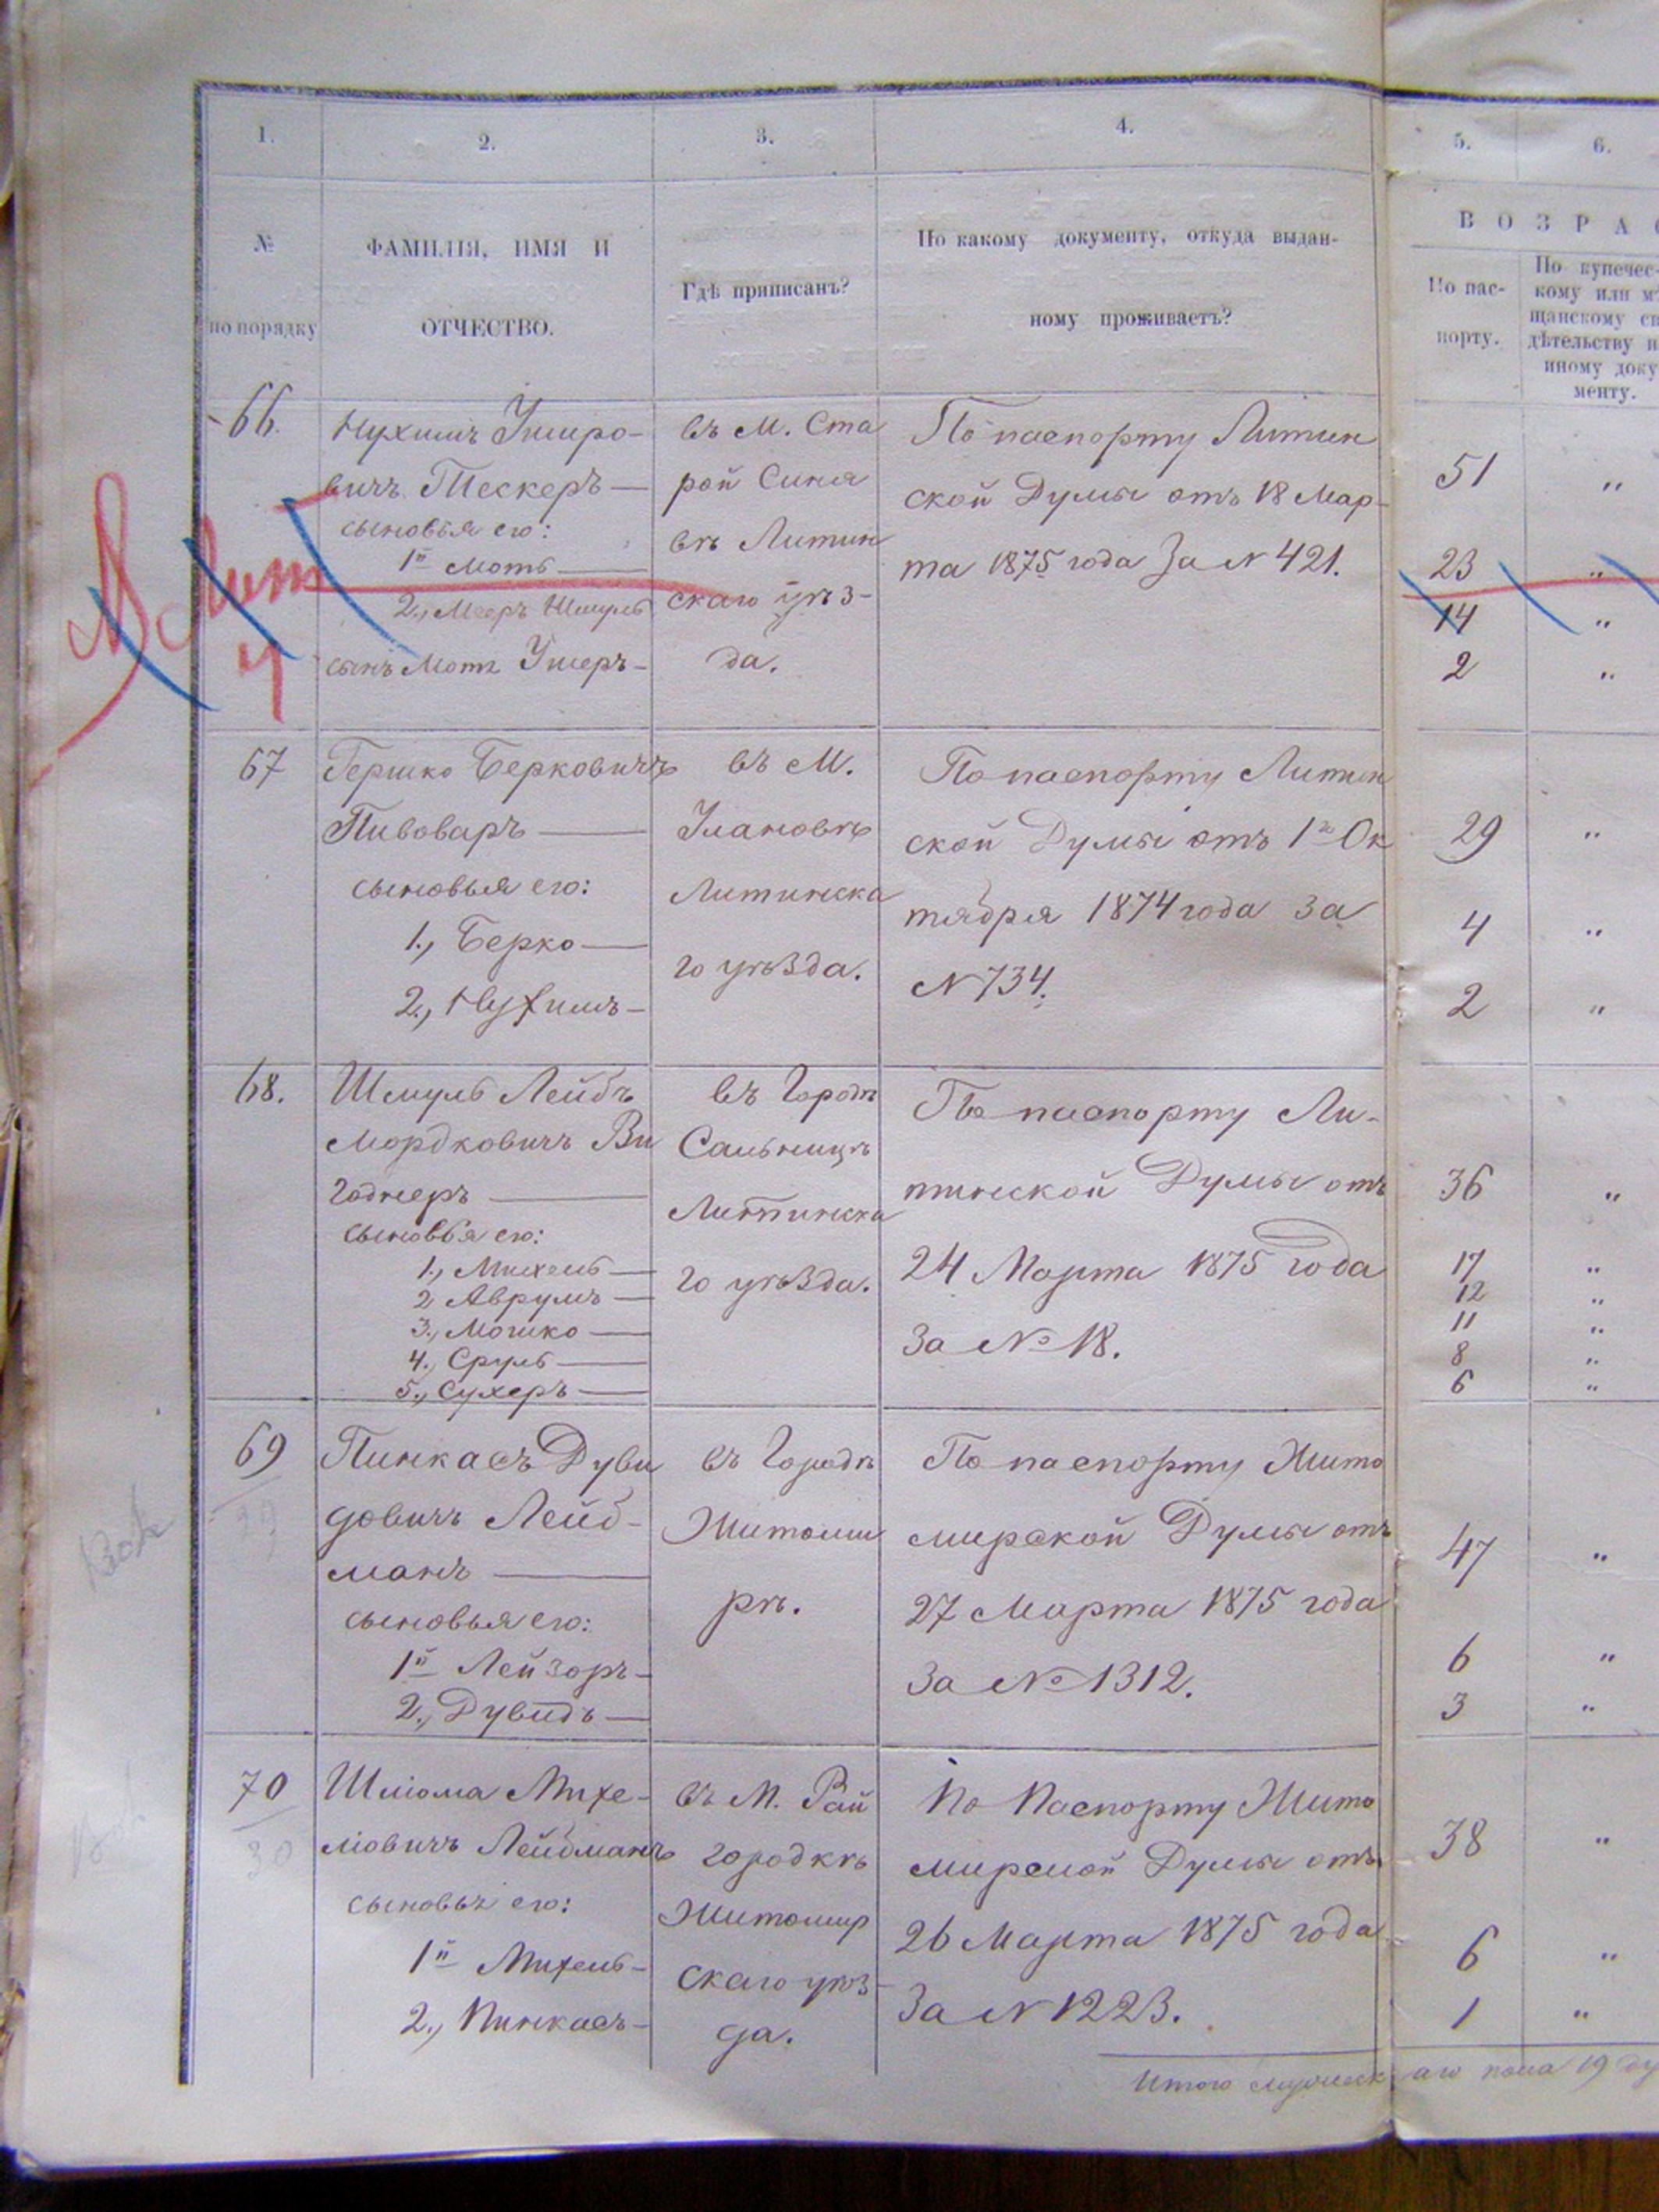 1.
2.
3.
4.
5.
6.
№
по порядку
ФАМИЛІЯ, ИМЯ И
ОТЧЕСТВО.
Гдѣ приписанъ?
По какому документу, откуда выдан-
ному проживаетъ?
ВОЗРАС
По пас-
порту.
По купечес-
кому или мѣ
щанскому св
дѣтельству и
иному доку
менту.
66.
Нухимъ Умеро-
вичъ Тескеръ —
сыновья его:
1й Моть —
2., Мееръ Шмуль
сынъ Мотя Умеръ -
въ М. Ста
рой Синя
въ Литин
скаго уѣз-
да.
По паспорту Литин
ской Думы отъ 18 Мар-
та 1875 года За N 421.
51 "
23 "
14 "
2 "
4
67
Гершко Берковичъ
Пивоваръ —
сыновья его:
1., Берко —
2., Нухимъ —
въ М.
Улановѣ
Литинска
го уѣзда.
По паспорту Литин
ской Думы отъ 1го Ок
тября 1874 года За
N 734.
29 "
4 "
2 "
68.
Шмуль Лейбъ
Мордковичъ Ви
годнеръ —
сыновья его:
1., Михель —
2 Аврумъ —
3., Мошко —
4., Сруль —
5., Сухеръ —
въ Городѣ
Сальницѣ
Литинска
го уѣзда.
По паспорту Ли-
тинской Думы отъ
24 Марта 1875 года
За № 18.
36 "
17 "
12 "
11 "
8 "
6 "
69
Пинкасъ Дуви
довичъ Лейб-
манъ —
сыновья его:
1й Лейзоръ —
2., Дувидъ —
въ Городѣ
Житоми
рѣ.
По паспорту Жито
мирской Думы отъ
27 Марта 1875 года
За № 1312.
47 "
6 "
3 "
70
30
Шліома Михе-
ліовичъ Лейбманъ
сыновья его:
1й Михель —
2., Пинкасъ —
въ М. Рай
городкѣ
Житомир
скаго уѣз-
да.
По Паспорту Жито
мирской Думы отъ
26 Марта 1875 года
За N 1223.
38 "
6 "
1 "
Итого мужеск аго пола 19 ду